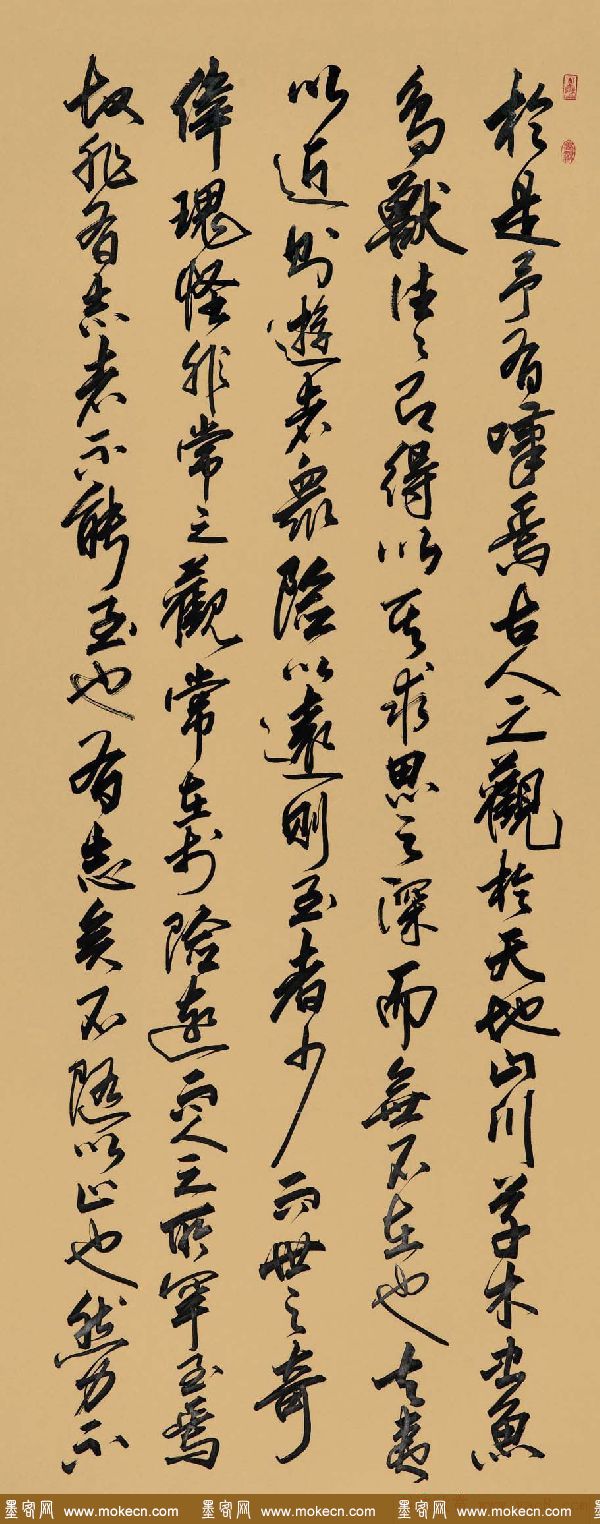 於是予有嘆焉古人之觀於天地山川草木虫魚
鳥獸往々有得以其求思之深而無不在也夫夷
以近則遊者衆險以遠則至者少而世之奇
偉瑰怪非常之觀常在於險遠而人之所罕至焉
故非有志者不能至也有志矣不隨以止也然力不
墨客网 www.mokecn.com 墨客网 www.mokecn.com 墨客网 www.mokecn.com